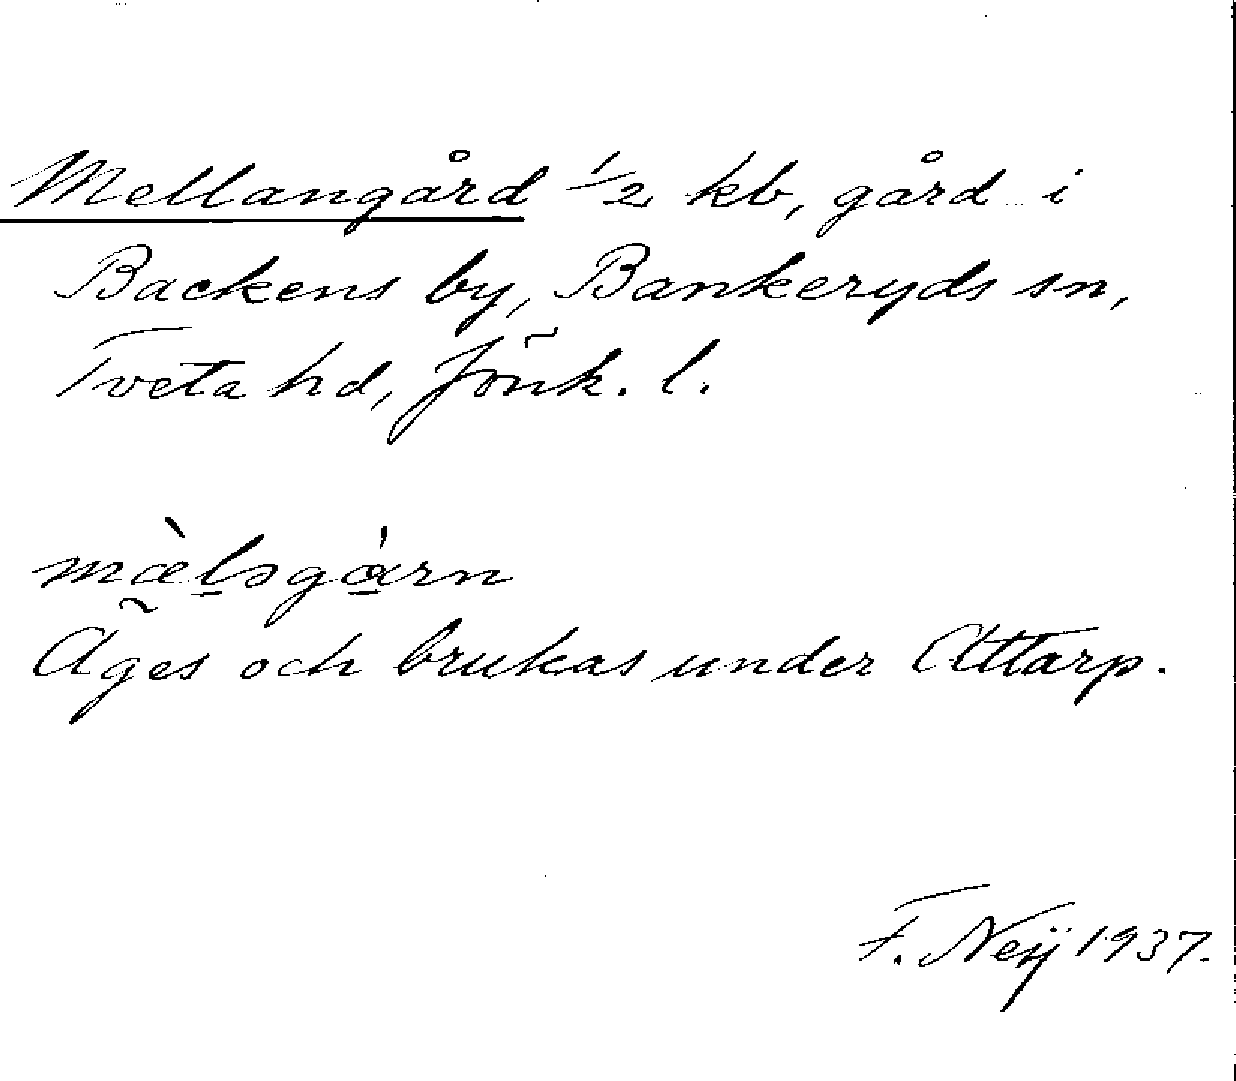 Mellangård 1/2 kb, gård i
Backens by, Bankeryds sn,
Tveta hd, Jönk. l.
mæ̀lsgɑ̀rn
Äges och brukas under Attarp.
F. Neij 1937.